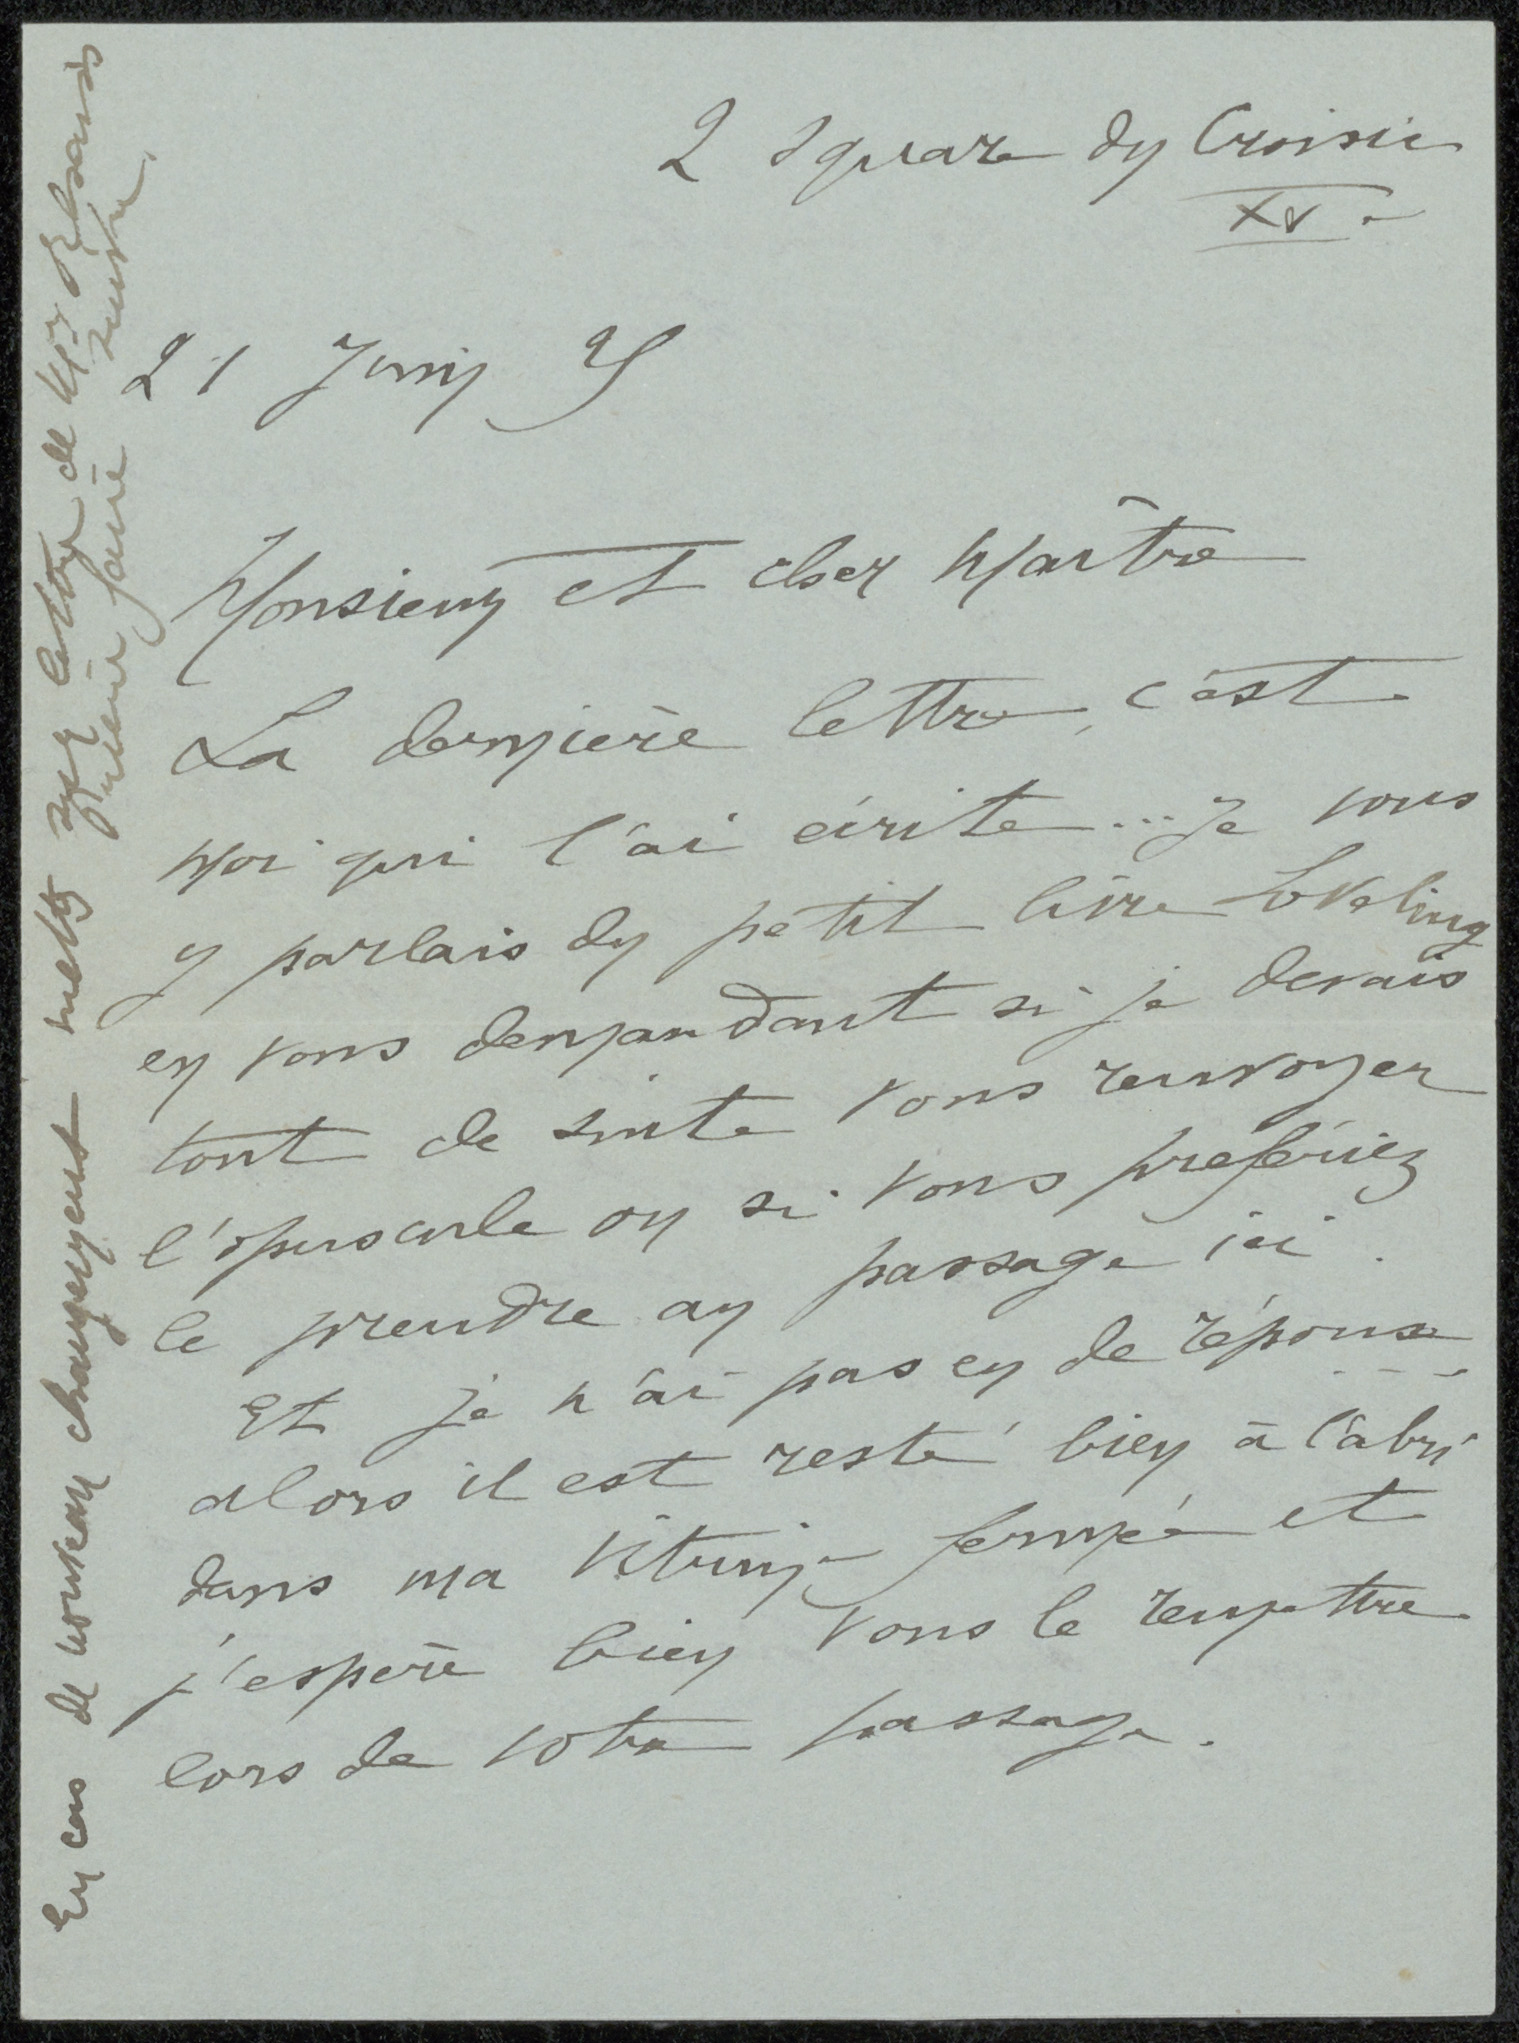 2 Square du Croisic
XV.
21 Juin 25
Monsieur et cher Maître
La dernière lettre, c'est
moi qui l'ai écrite... Je vous
y parlais du petit livre Loveling
en vous demandant si je devais
tout de suite vous renvoyer
l'opuscule ou si vous préfériez
le prendre au passage ici.
Et je n'ai pas eu de réponse
alors il est resté bien à l'abri
dans ma vitrine fermée et
j'espère bien vous le remettre
lors de votre passage.
En cas de nouveau changement mettez sur lettre de Mr
Prière faire suivre.